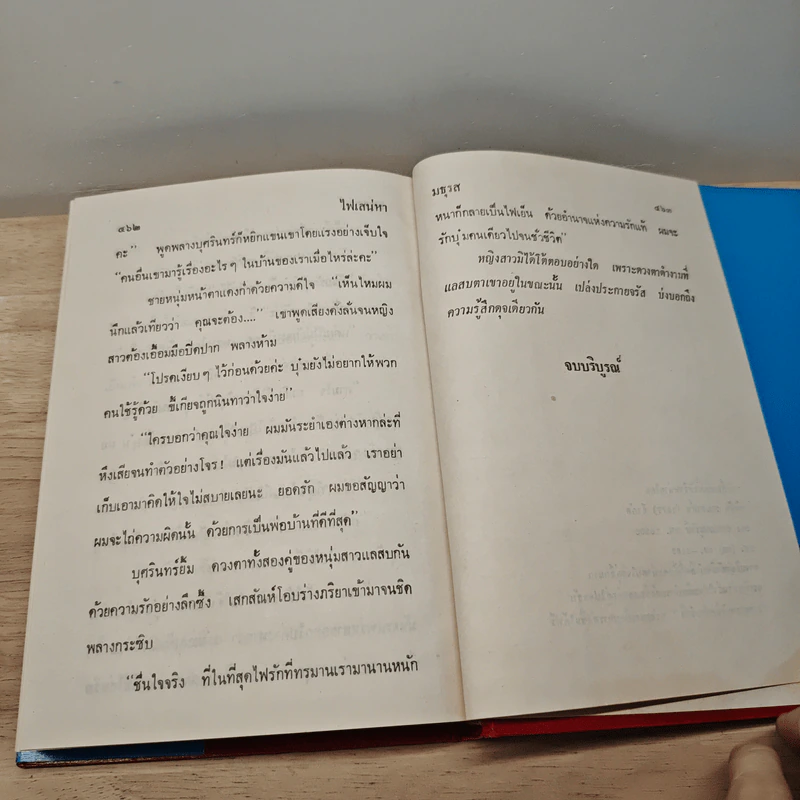 ๔๖๒
ไฟเสน่หา
คะ” พูดพลางบุศรินทร์ก็หยิกแขนเขาโดยแรงอย่างเจ็บใจ
“คนอื่นเขามารู้เรื่องอะไรๆ ในบ้านของเราเมื่อไหร่ล่ะคะ”
ชายหนุ่มหน้าตาแดงก่ำด้วยความดีใจ “เห็นไหมผม
นึกแล้วเทียวว่า คุณจะต้อง....” เขาพูดเสียงดังลั่นจนหญิง
สาวต้องเอื้อมมือปิดปาก พลางห้าม
“โปรดเงียบๆ ไว้ก่อนด้วยค่ะ บุ๋มยังไม่อยากให้พวก
คนใช้รู้ด้วย ขี้เกียจถูกนินทาว่าใจง่าย”
“ใครบอกว่าคุณใจง่าย ผมมันระยำเองต่างหากล่ะที่
หึงเสียจนทำตัวอย่างโจร! แต่เรื่องมันแล้วไปแล้ว เราอย่า
เก็บเอามาคิดให้ใจไม่สบายเลยนะ ยอดรัก ผมขอสัญญาว่า
ผมจะไถ่ความผิดนั้น ด้วยการเป็นพ่อบ้านที่ดีที่สุด”
บุศรินทร์ยิ้ม ดวงตาทั้งสองคู่ของหนุ่มสาวแลสบกัน
ด้วยความรักอย่างลึกซึ้ง เสกสัณห์โอบร่างภริยาเข้ามาจนชิด
พลางกระซิบ
“ชื่นใจจริง ที่ในที่สุดไฟรักที่ทรมานเรามานานหนัก
มธุรส
๔๖๓
หนาก็กลายเป็นไฟเย็น ด้วยอำนาจแห่งความรักแท้ ผมจะ
รักบุ๋มคนเดียวไปจนชั่วชีวิต”
หญิงสาวมิได้โต้ตอบอย่างใด เพราะดวงตาดำงามที่
แลสบตาเขาอยู่ในขณะนั้น เปล่งประกายจรัส บ่งบอกถึง
ความรู้สึกดุจเดียวกัน
จบบริบูรณ์